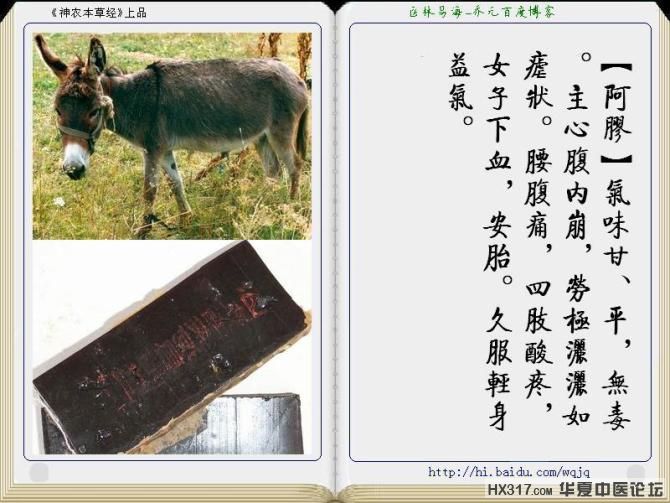 《神农本草经》上品
医林易海-乔元百度博客
【阿膠】氣味甘、平，無毒
。主心腹内崩，勞極灑灑如
瘧狀。腰腹痛，四肢酸疼，
女子下血，安胎。久服輕身
益氣。
http://hi.baidu.com/wqjq
HX317.com 华夏中医论坛